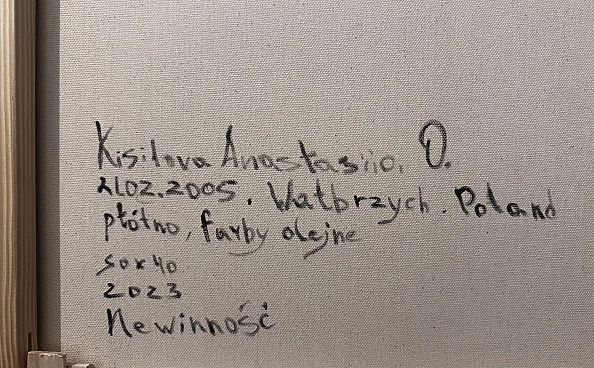 Kisilova Anastasiia. O.
21.02.2005. Wałbrzych. Poland
płótno, farby olejne
50x40
2023
Newinność